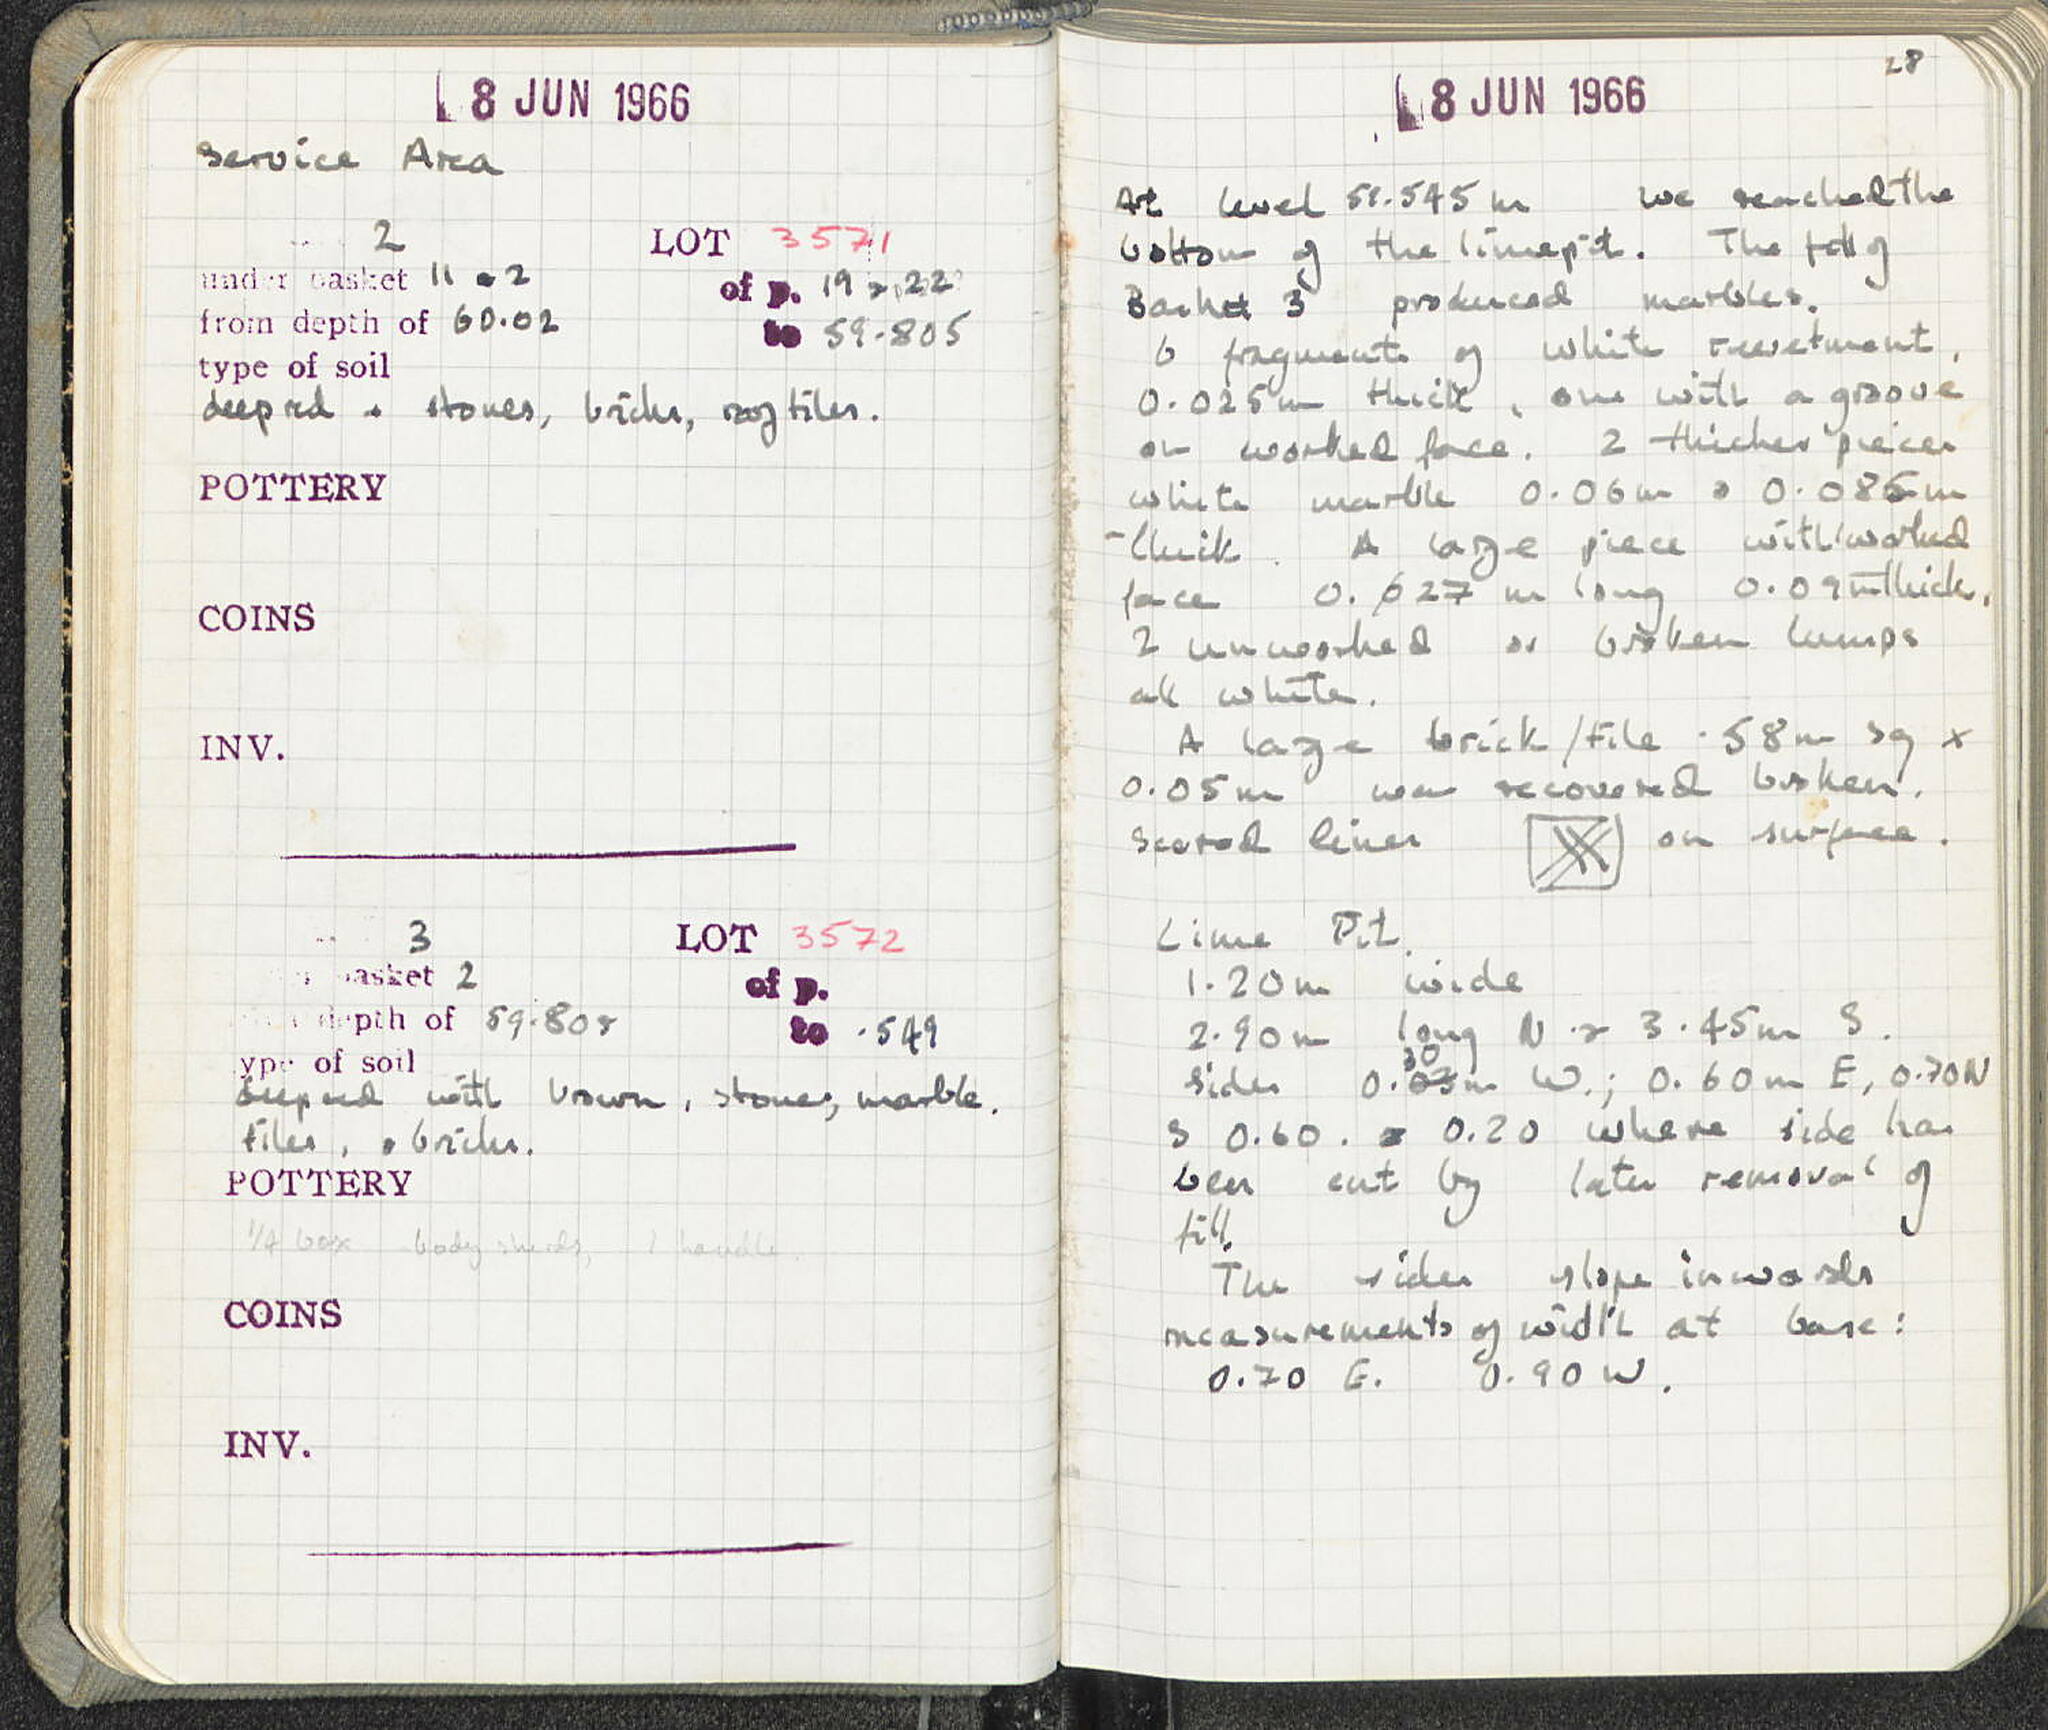 8 JUN 1966
Service Area
2 LOT 3571
under basket 11 + 2 of p. 19 + 22
from depth of 60.02 to 59.805
type of soil
deep red + stones, bricks, roof tiles.
POTTERY
COINS
INV.
3 LOT 3572
basket 2 of p.
depth of 59.805 to .549
type of soil
deep red with brown, stones, marble,
tiles, + bricks.
POTTERY
1/4 box body sherds, 1 handle.
COINS
INV.
28
8 JUN 1966
At level 59.545 m we reached the
bottom of the limepit. The fill of
Basket 3 produced marbles.
6 fragments of white revetment,
0.025m thick, one with a groove
on worked face. 2 thicker pieces
white marble 0.06m + 0.085m
thick. A large piece with worked
face 0.627 m long 0.09m thick,
2 unworked or broken lumps
all white.
A large brick/tile .58m sq x
0.05m was recovered broken.
scored lines on surface.
Lime Pit.
1.20m wide
2.90m long N + 3.45m S.
30
Sides 0. m W.; 0.60m E, 0.70 N
S 0.60. + 0.20 where side has
been cut by later removal of
fill.
The sides slope inwards
measurements of width at base:
0.70 E. 0.90 W.